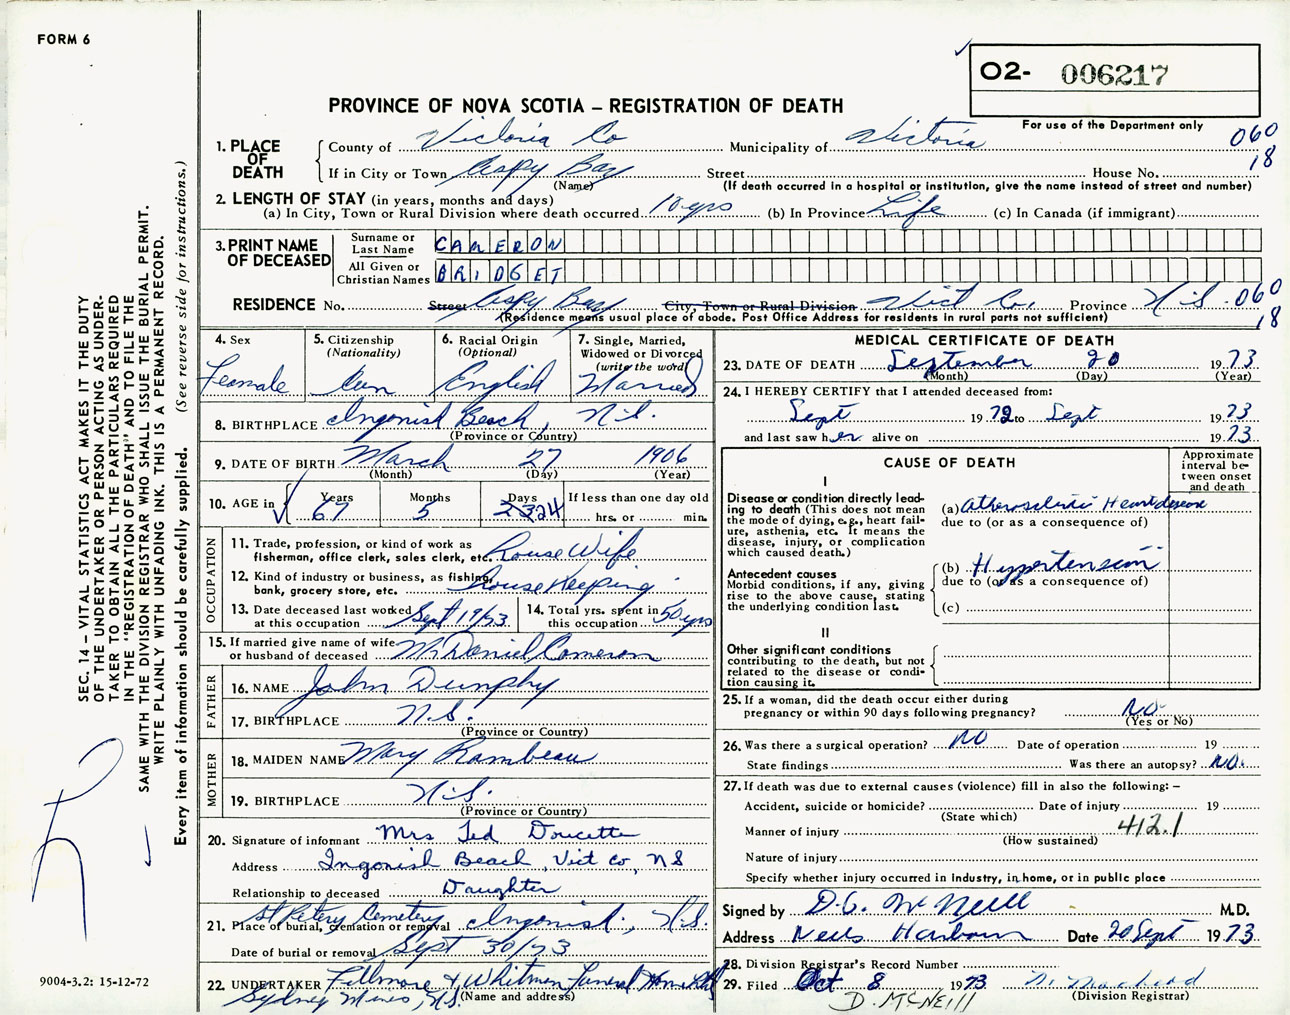 FORM 6
O2- 006217
PROVINCE OF NOVA SCOTIA – REGISTRATION OF DEATH
For use of the Department only
060
18
1. PLACE OF DEATH
County of Victoria Co Municipality of Victoria
If in City or Town Aspy Bay Street House No.
(Name) (If death occurred in a hospital or institution, give the name instead of street and number)
2. LENGTH OF STAY (in years, months and days)
(a) In City, Town or Rural Division where death occurred 10 yrs (b) In Province Life (c) In Canada (if immigrant)
3. PRINT NAME OF DECEASED
Surname or Last Name CAMERON
All Given or Christian Names BRIDGET
RESIDENCE No. Street Aspy Bay City, Town or Rural Division Vict Co. Province N.S. 060
(Residence means usual place of abode. Post Office Address for residents in rural parts not sufficient) 18
4. Sex
Female
5. Citizenship
(Nationality)
Can
6. Racial Origin
(Optional)
English
7. Single, Married,
Widowed or Divorced
(write the word)
Married
8. BIRTHPLACE Ingonish Beach, N.S.
(Province or Country)
9. DATE OF BIRTH March 27 1906
(Month) (Day) (Year)
10. AGE in Years Months Days If less than one day old
67 5 24 hrs. or min.
OCCUPATION
11. Trade, profession, or kind of work as
fisherman, office clerk, sales clerk, etc. House Wife
12. Kind of industry or business, as fishing,
bank, grocery store, etc. House Keeping
13. Date deceased last worked
at this occupation Sept 19/73
14. Total yrs. spent in
this occupation 50 yrs
15. If married give name of wife
or husband of deceased Mr Daniel Cameron
FATHER
16. NAME John Dunphy
17. BIRTHPLACE N.S.
(Province or Country)
MOTHER
18. MAIDEN NAME Mary Rambeau
19. BIRTHPLACE N.S.
(Province or Country)
20. Signature of informant Mrs Ted Doucette
Address Ingonish Beach, Vict Co, NS
Relationship to deceased Daughter
21. Place of burial, cremation or removal St Peters Cemetery Ingonish, N.S.
Date of burial or removal Sept 30/73
22. UNDERTAKER Fillmore & Whitman Funeral Home Ltd
Sydney Mines, N.S. (Name and address)
MEDICAL CERTIFICATE OF DEATH
23. DATE OF DEATH September 20 1973
(Month) (Day) (Year)
24. I HEREBY CERTIFY that I attended deceased from:
Sept 1972 to Sept 1973
and last saw her alive on 1973
CAUSE OF DEATH
Approximate
interval be-
tween onset
and death
I
Disease or condition directly lead-
ing to death (This does not
mean the mode of dying, e.g., heart fail-
ure, asthenia, etc. It means the
disease, injury, or complication
which caused death.)
(a) Atherosclerotic Heart disease
due to (or as a consequence of)
Antecedent causes
Morbid conditions, if any, giving
rise to the above cause, stating
the underlying condition last.
(b) Hypertension
due to (or as a consequence of)
(c)
II
Other significant conditions
contributing to the death, but not
related to the disease or condi-
tion causing it.
25. If a woman, did the death occur either during
pregnancy or within 90 days following pregnancy? No
(Yes or No)
26. Was there a surgical operation? NO Date of operation 19
State findings Was there an autopsy? NO.
27. If death was due to external causes (violence) fill in also the following: –
Accident, suicide or homicide? Date of injury 19
(State which)
Manner of injury 412.1
(How sustained)
Nature of injury
Specify whether injury occurred in industry, in home, or in public place
Signed by D.C. McNeill M.D.
Address Neils Harbour Date 20 Sept 1973
28. Division Registrar's Record Number
29. Filed Oct 8 1973
D. McNEIll (Division Registrar)
SEC. 14 – VITAL STATISTICS ACT MAKES IT THE DUTY
OF THE UNDERTAKER OR PERSON ACTING AS UNDER-
TAKER TO OBTAIN ALL THE PARTICULARS REQUIRED
IN THE "REGISTRATION OF DEATH" AND TO FILE THE
SAME WITH THE DIVISION REGISTRAR WHO SHALL ISSUE THE BURIAL PERMIT.
WRITE PLAINLY WITH UNFADING INK. THIS IS A PERMANENT RECORD.
Every item of information should be carefully supplied. (See reverse side for instructions.)
9004-3.2: 15-12-72